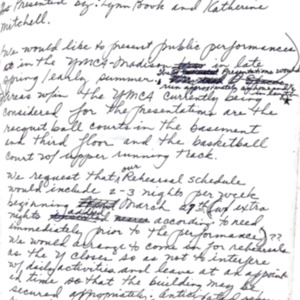 As Presented by: Lynn Book and Katherine
Mitchell.
We would like to present public performances
at in the YMCA-Madison in late
Spring/early summer. Presentations would
run approximately
areas w/in the YMCA currently being
considered for the presentation are the
racquet ball courts in the basement
and third floor and the basketball
court w/ upper running track.
We request that our Rehearsal schedule
would include 2-3 nights per week
beginning March (two extra
nights according to need
immediately prior to the performance)??
We would arrange to come in for rehearsals
as the Y closes so as not to interfere
w/ daily activities and leave at an appoint
ed time so that the building may be
secured appropriately. Anticipated